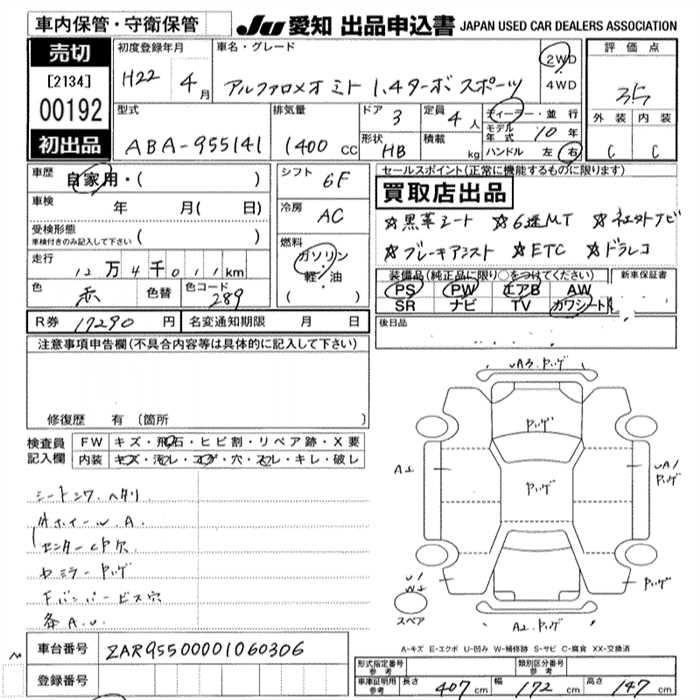 車内保管・守衛保管
JU 愛知 出品申込書 JAPAN USED CAR DEALERS ASSOCIATION
売切
[2134]
00192
初出品
初度登録年月
H22 4月
車名・グレード
アルファロメオ ミト 1.4ターボ スポーツ
2WD
・
4WD
評価点
3.5
外装 内装
C C
型式
ABA-955141
排気量
1400 CC
ドア 3
形状 HB
定員 4人
積載 kg
ディーラー・並行
モデル年式 10年
ハンドル 左 右
車歴 自家用・( )
車検 年 月( 日)
受検形態
車検付きのみ記入して下さい ( )
走行 12万4千011km
色 赤 色替 色コード 289
シフト 6F
冷房 AC
燃料
ガソリン
軽・油
( )
セールスポイント(正常に機能するものに限ります)
買取店出品
☆黒革シート ☆6速MT ☆ネクストナビ
☆ブレーキアシスト ☆ETC ☆ドラレコ
装備品(純正品に限り○をつけてください) 新車保証書
PS PW エアB AW
SR ナビ TV カワシート
後日品
R券 17290円 名変通知期限 月 日
注意事項申告欄(不具合内容等は具体的に記入して下さい)
修復歴 有〔箇所 〕
検査員記入欄
FW キズ・飛石・ヒビ割・リペア跡・X要
内装 キズ・汚レ・コゲ・穴・スレ・キレ・破レ
シートシワ、ヘタリ
ホイールA.
センターCP欠
下バンパービス穴
車台番号 ZAR95500001060306
登録番号
UA3
A2
スペア
A-キズ E-エクボ U-凹み W-補修跡 S-サビ C-腐食 XX-交換済
形式指定番号 参考
類別区分番号 参考
車庫証明用 参考 長さ 407cm 幅 172cm 高さ 147cm